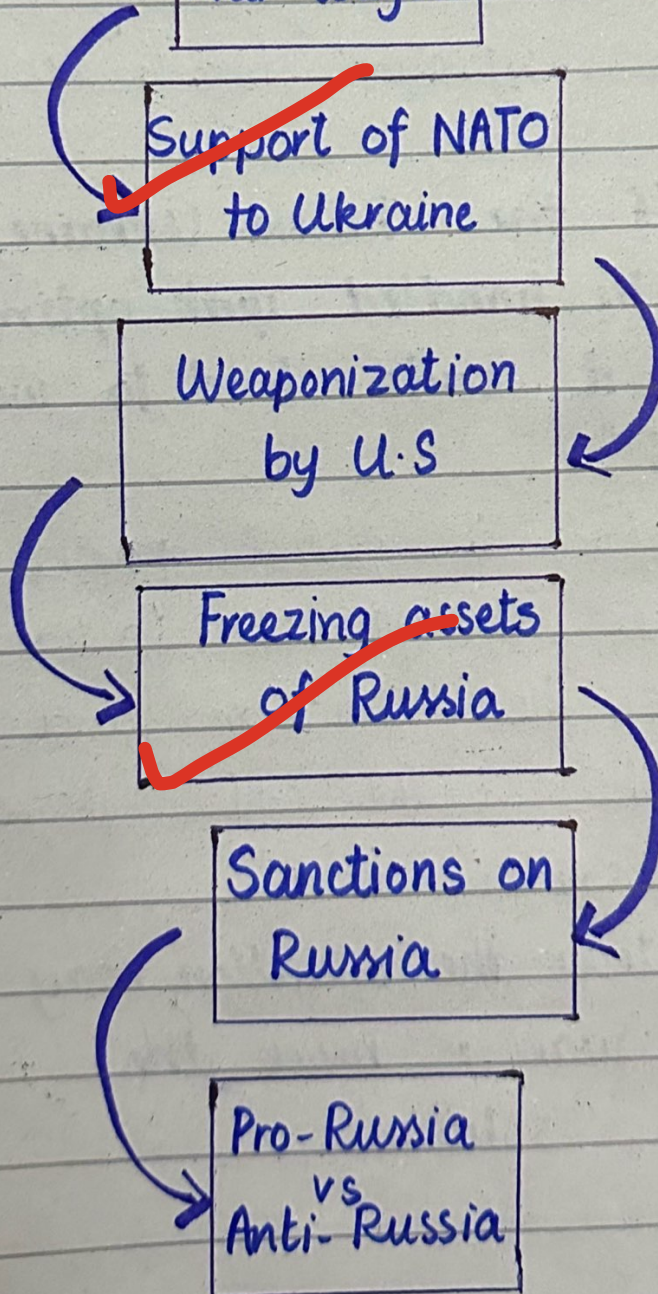 Support of NATO
to Ukraine
Weaponization
by U.S
Freezing assets
of Russia
Sanctions on
Russia
Pro-Russia
vs
Anti-Russia